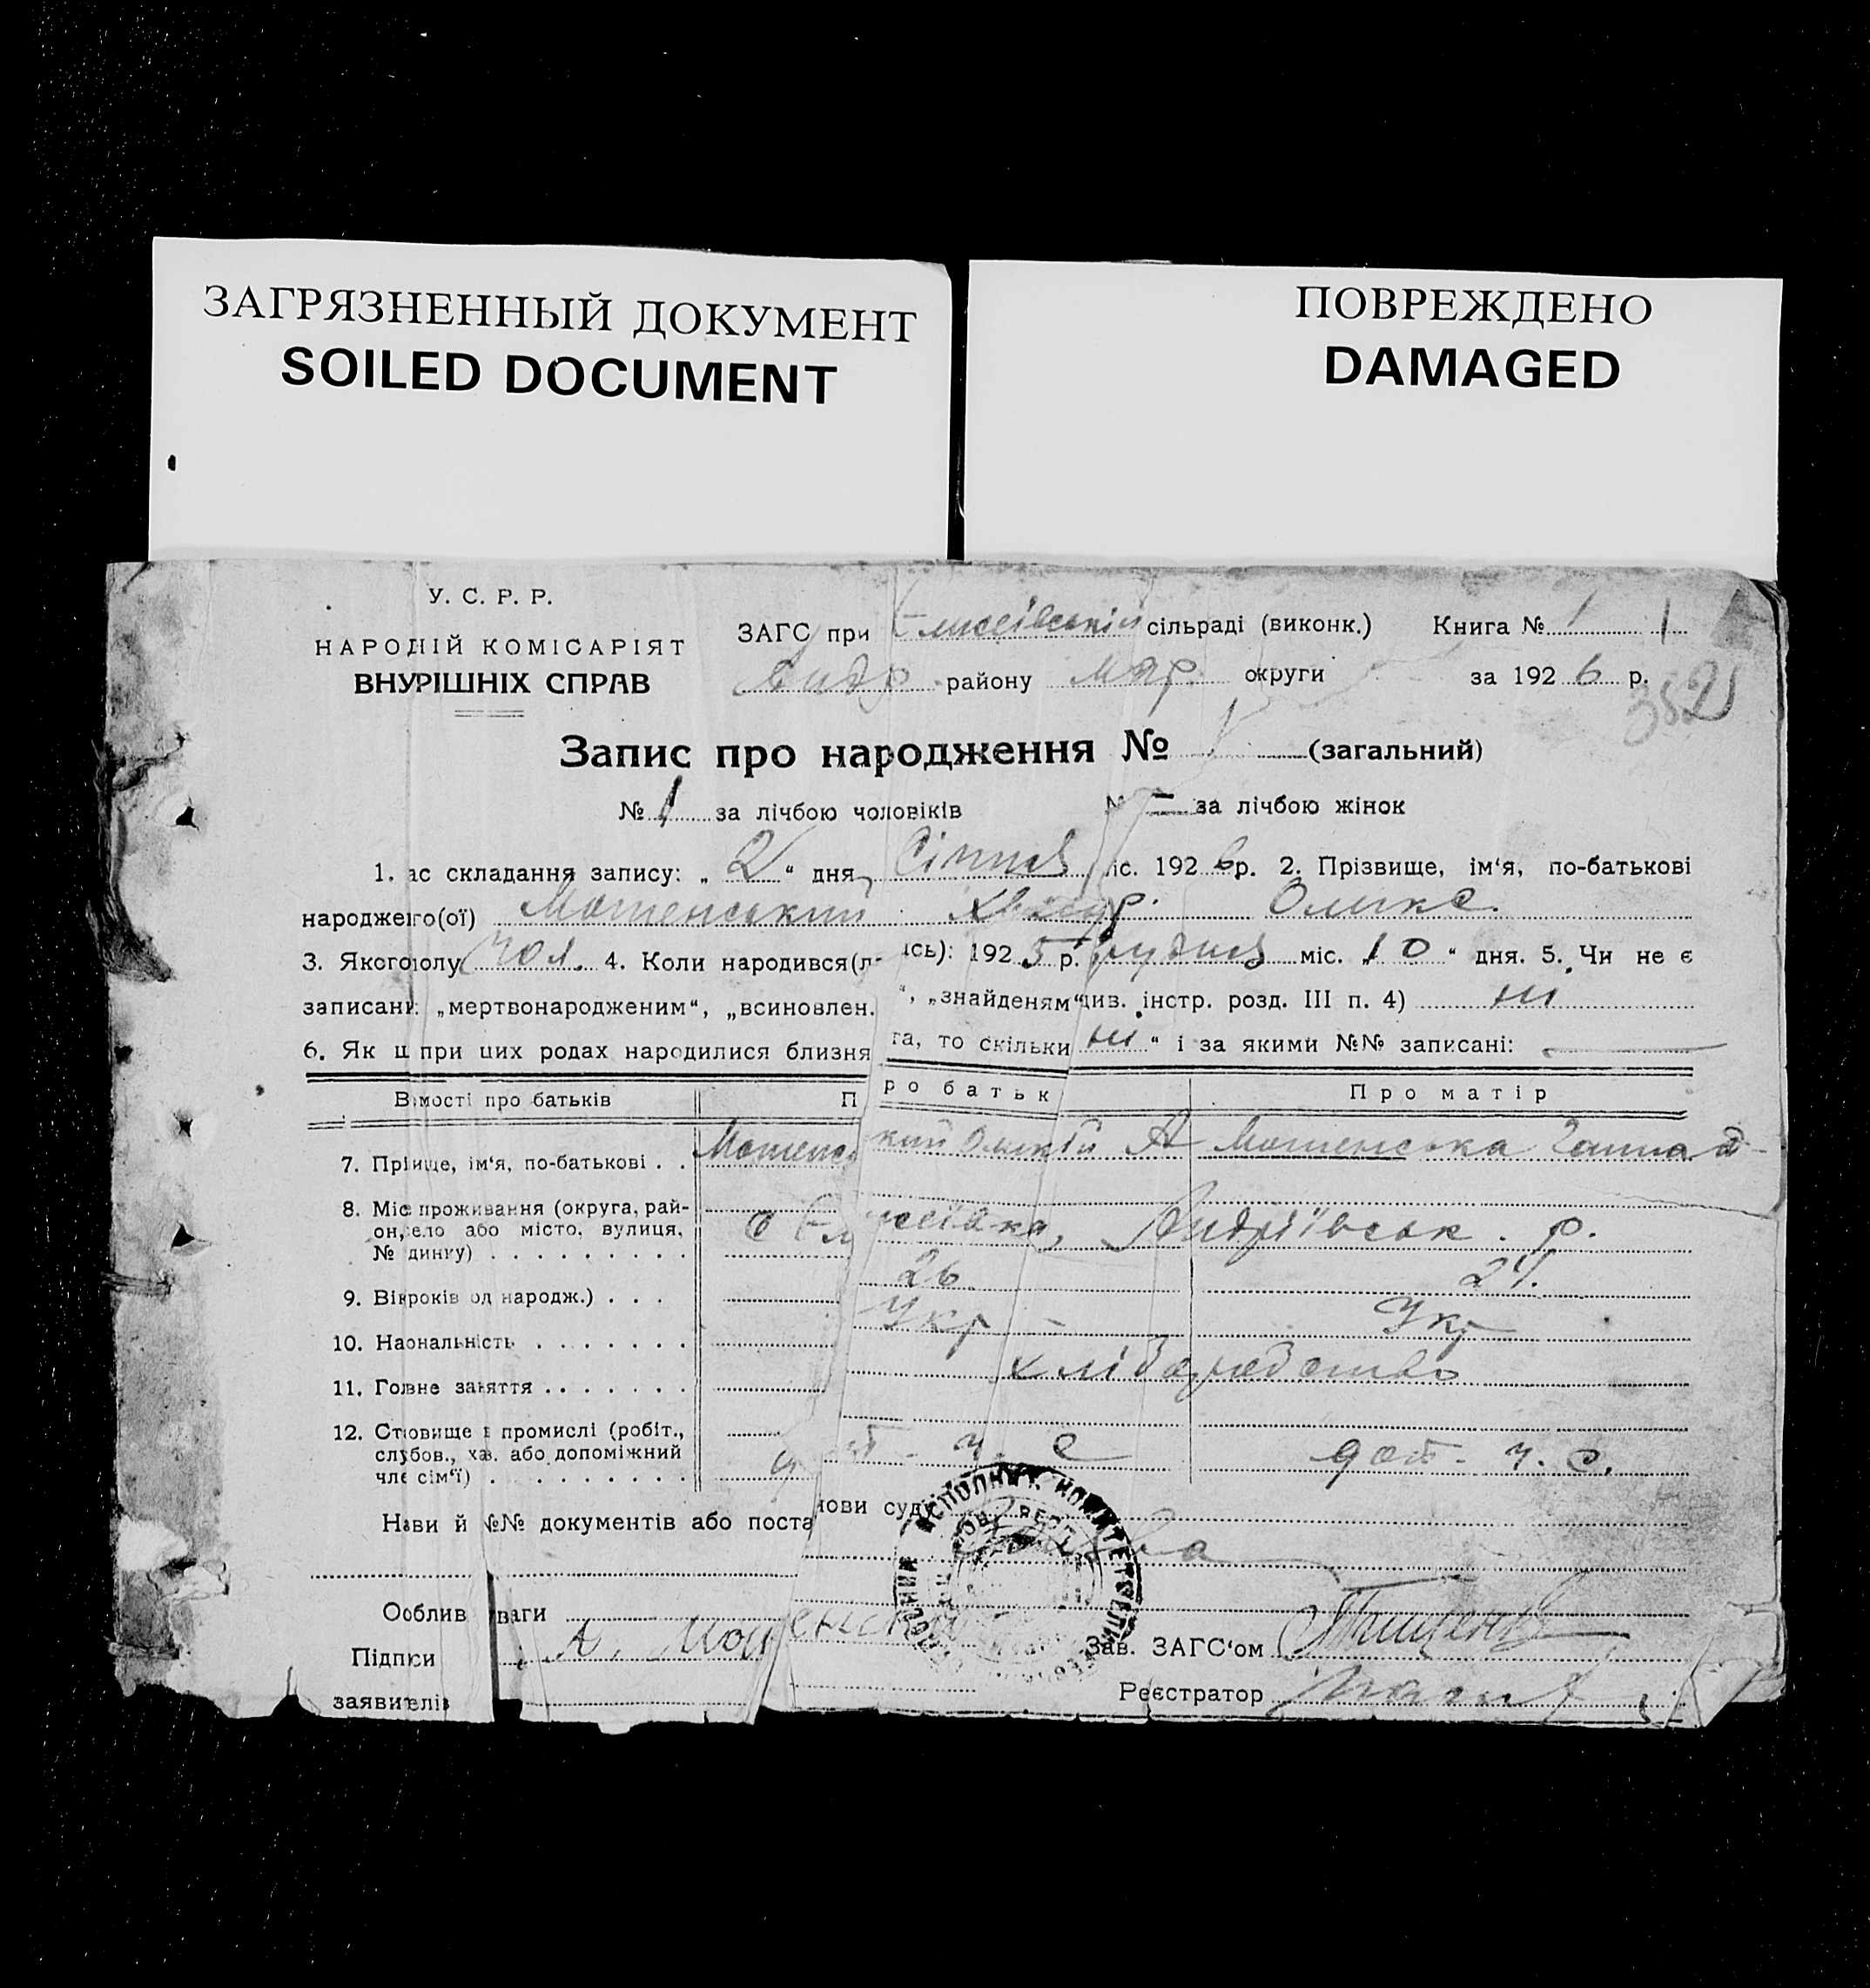 ЗАГРЯЗНЕННЫЙ ДОКУМЕНТ
SOILED DOCUMENT
ПОВРЕЖДЕНО
DAMAGED
У. С. Р. Р.
НАРОДНІЙ КОМІСАРІЯТ
ВНУРІШНІХ СПРАВ
ЗАГС при Єлисеівській сільраді (виконк.) Книга № 1
Андр. району Мар. округи за 1926 р.
352
Запис про народження № 1 (загальний)
№ 1 за лічбою чоловіків № — за лічбою жінок
1. ас складання запису: „ 2 “ дня Січня міс. 1926 р. 2. Прізвище, ім‘я, по-батькові
народжего(ої) Мошенський Олекс.
3. Якого полу чол. 4. Коли народився(л- ись): 1925 р. грудня міс. „10“ дня. 5. Чи не є
записани: „мертвонародженим“, „всиновлен. “, „знайденям“ див. інстр. розд. III п. 4) ні
6. Як ц при цих родах народилися близня та, то скільки ні “ і за якими №№ записані: —
Вімості про батьків Про батьк Про матір
7. Прізвище, ім‘я, по-батькові . . Мошенський Олексій А Мошенська Ганна Д
8. Місце проживання (округа, рай-
он, село або місто, вулиця,
№ динку) . . . . . . . . . с Єлисеівка, Андріівськ. р.
9. Вік (років од народж.) . . . 26 24.
10. Наональність . . . . . . . Укр Укр
11. Головне заняття . . . . . . . хліборобство
12. Становище в промислі (робіт.,
службов., хаз. або допоміжний
член сім‘ї) . . . . . . . . . доп. ч. с. доп. ч. с.
Нави й №№ документів або постанови суду
Особлив уваги
Підписи А. Мошенский Зав. ЗАГС‘ом
заявителів Реєстратор